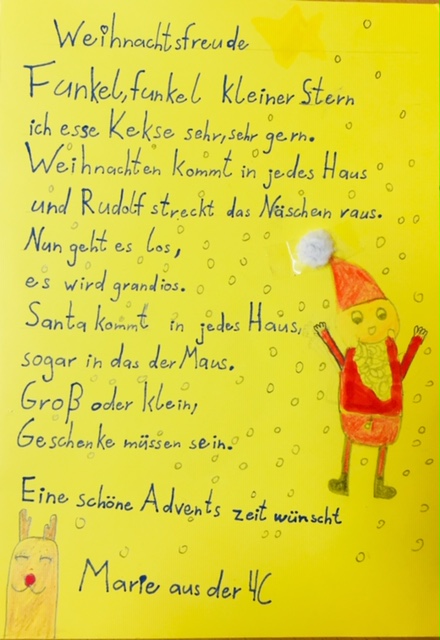 Weihnachtsfreude
Funkel, funkel kleiner Stern
ich esse Kekse sehr, sehr gern.
Weihnachten kommt in jedes Haus
und Rudolf streckt das Näschen raus.
Nun geht es los,
es wird grandios.
Santa kommt in jedes Haus,
sogar in das der Maus.
Groß oder klein,
Geschenke müssen sein.
Eine schöne Advents zeit wünscht
Marie aus der 4C